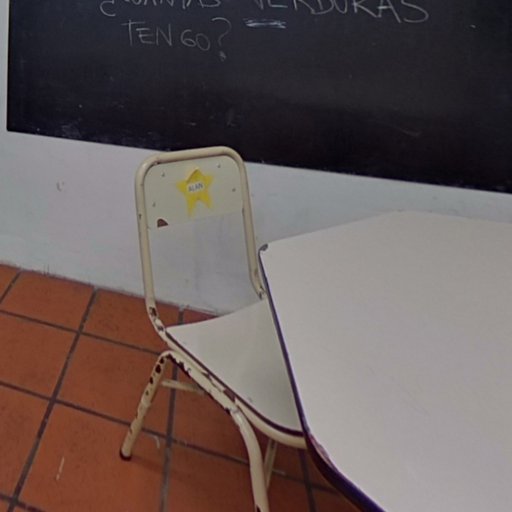 ¿CUÁNTAS VERDURAS
TENGO?
ALAN